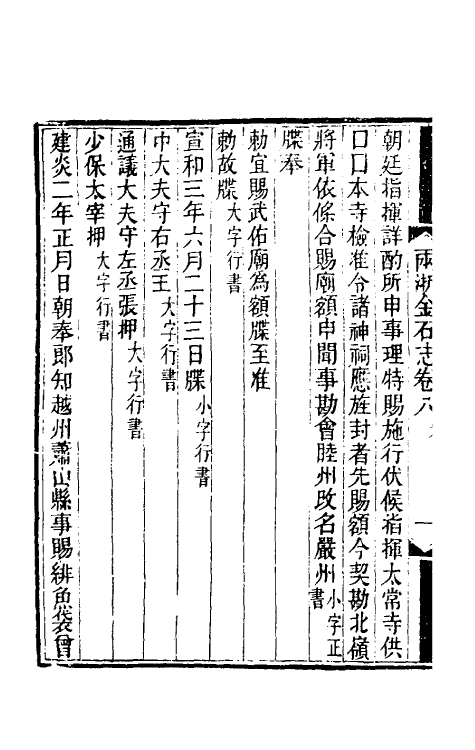 兩浙金石志卷八
朝廷指揮詳酌所申事理特賜施行伏候指揮太常寺供
囗囗本寺檢准令諸神祠應旌封者先賜額今契勘北嶺
將軍依條合賜廟額申聞事勘會睦州改名嚴州小字正書
牒奉
勅宜賜武佑廟為額牒至准
勅故牒大字行書
宣和三年六月二十三日牒小字行書
中大夫守右丞王大字行書
通議大夫守左丞張押大字行書
少保太宰押大字行書
建炎二年正月日朝奉郎知越州蕭山縣事賜緋魚袋曾